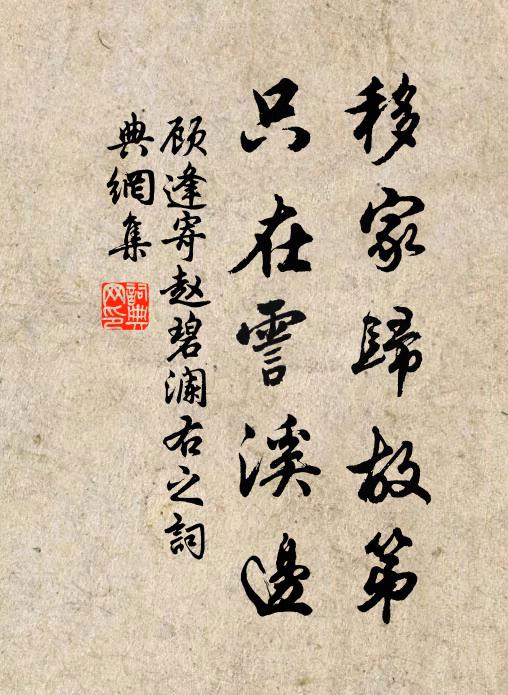 移家歸故第
只在霅溪邊
顾逢寄赵碧澜右之詞
典網集
詞典
网印